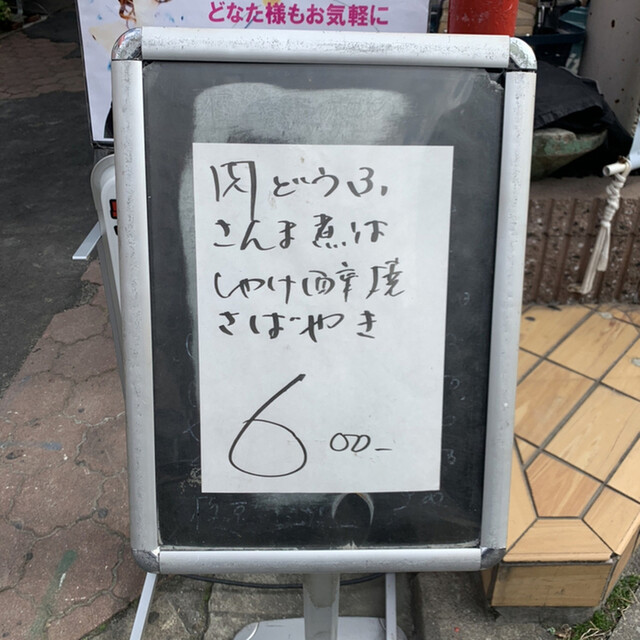 どなた様もお気軽に
肉どうふ
さんま煮は
しゃけ酒焼
さばやき
600-